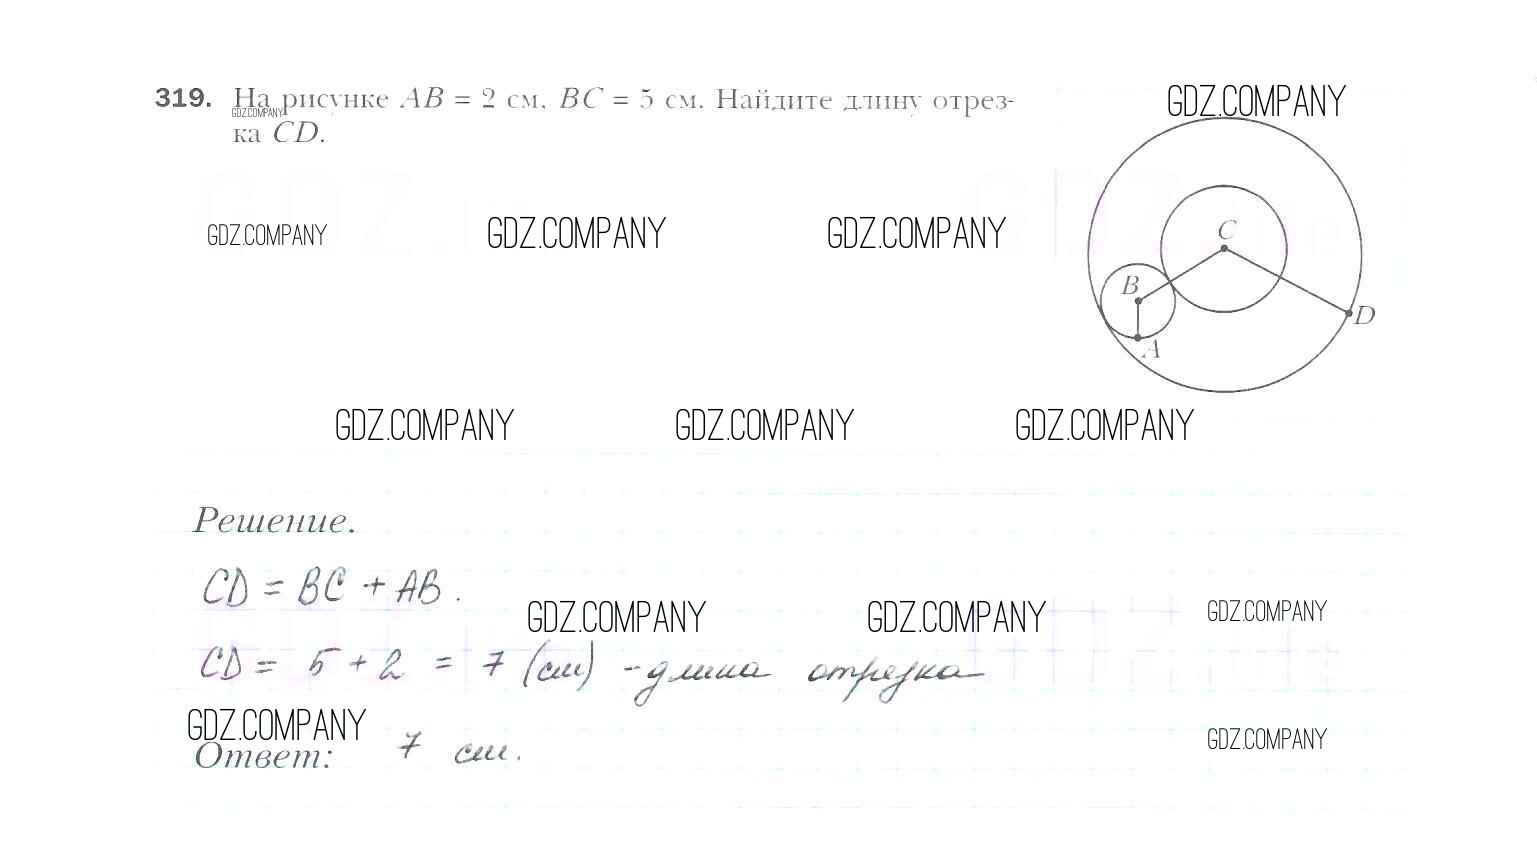 319. На рисунке AB = 2 см, BC = 5 см. Найдите длину отрез-
GDZ.COMPANY
GDZ.COMPANY
ка CD.
GDZ.COMPANY GDZ.COMPANY GDZ.COMPANY
C
B
D
A
GDZ.COMPANY GDZ.COMPANY GDZ.COMPANY
Решение.
CD = BC + AB.
GDZ.COMPANY GDZ.COMPANY GDZ.COMPANY
CD = 5 + 2 = 7 (см) - длина отрезка
GDZ.COMPANY
GDZ.COMPANY
Ответ: 7 см.